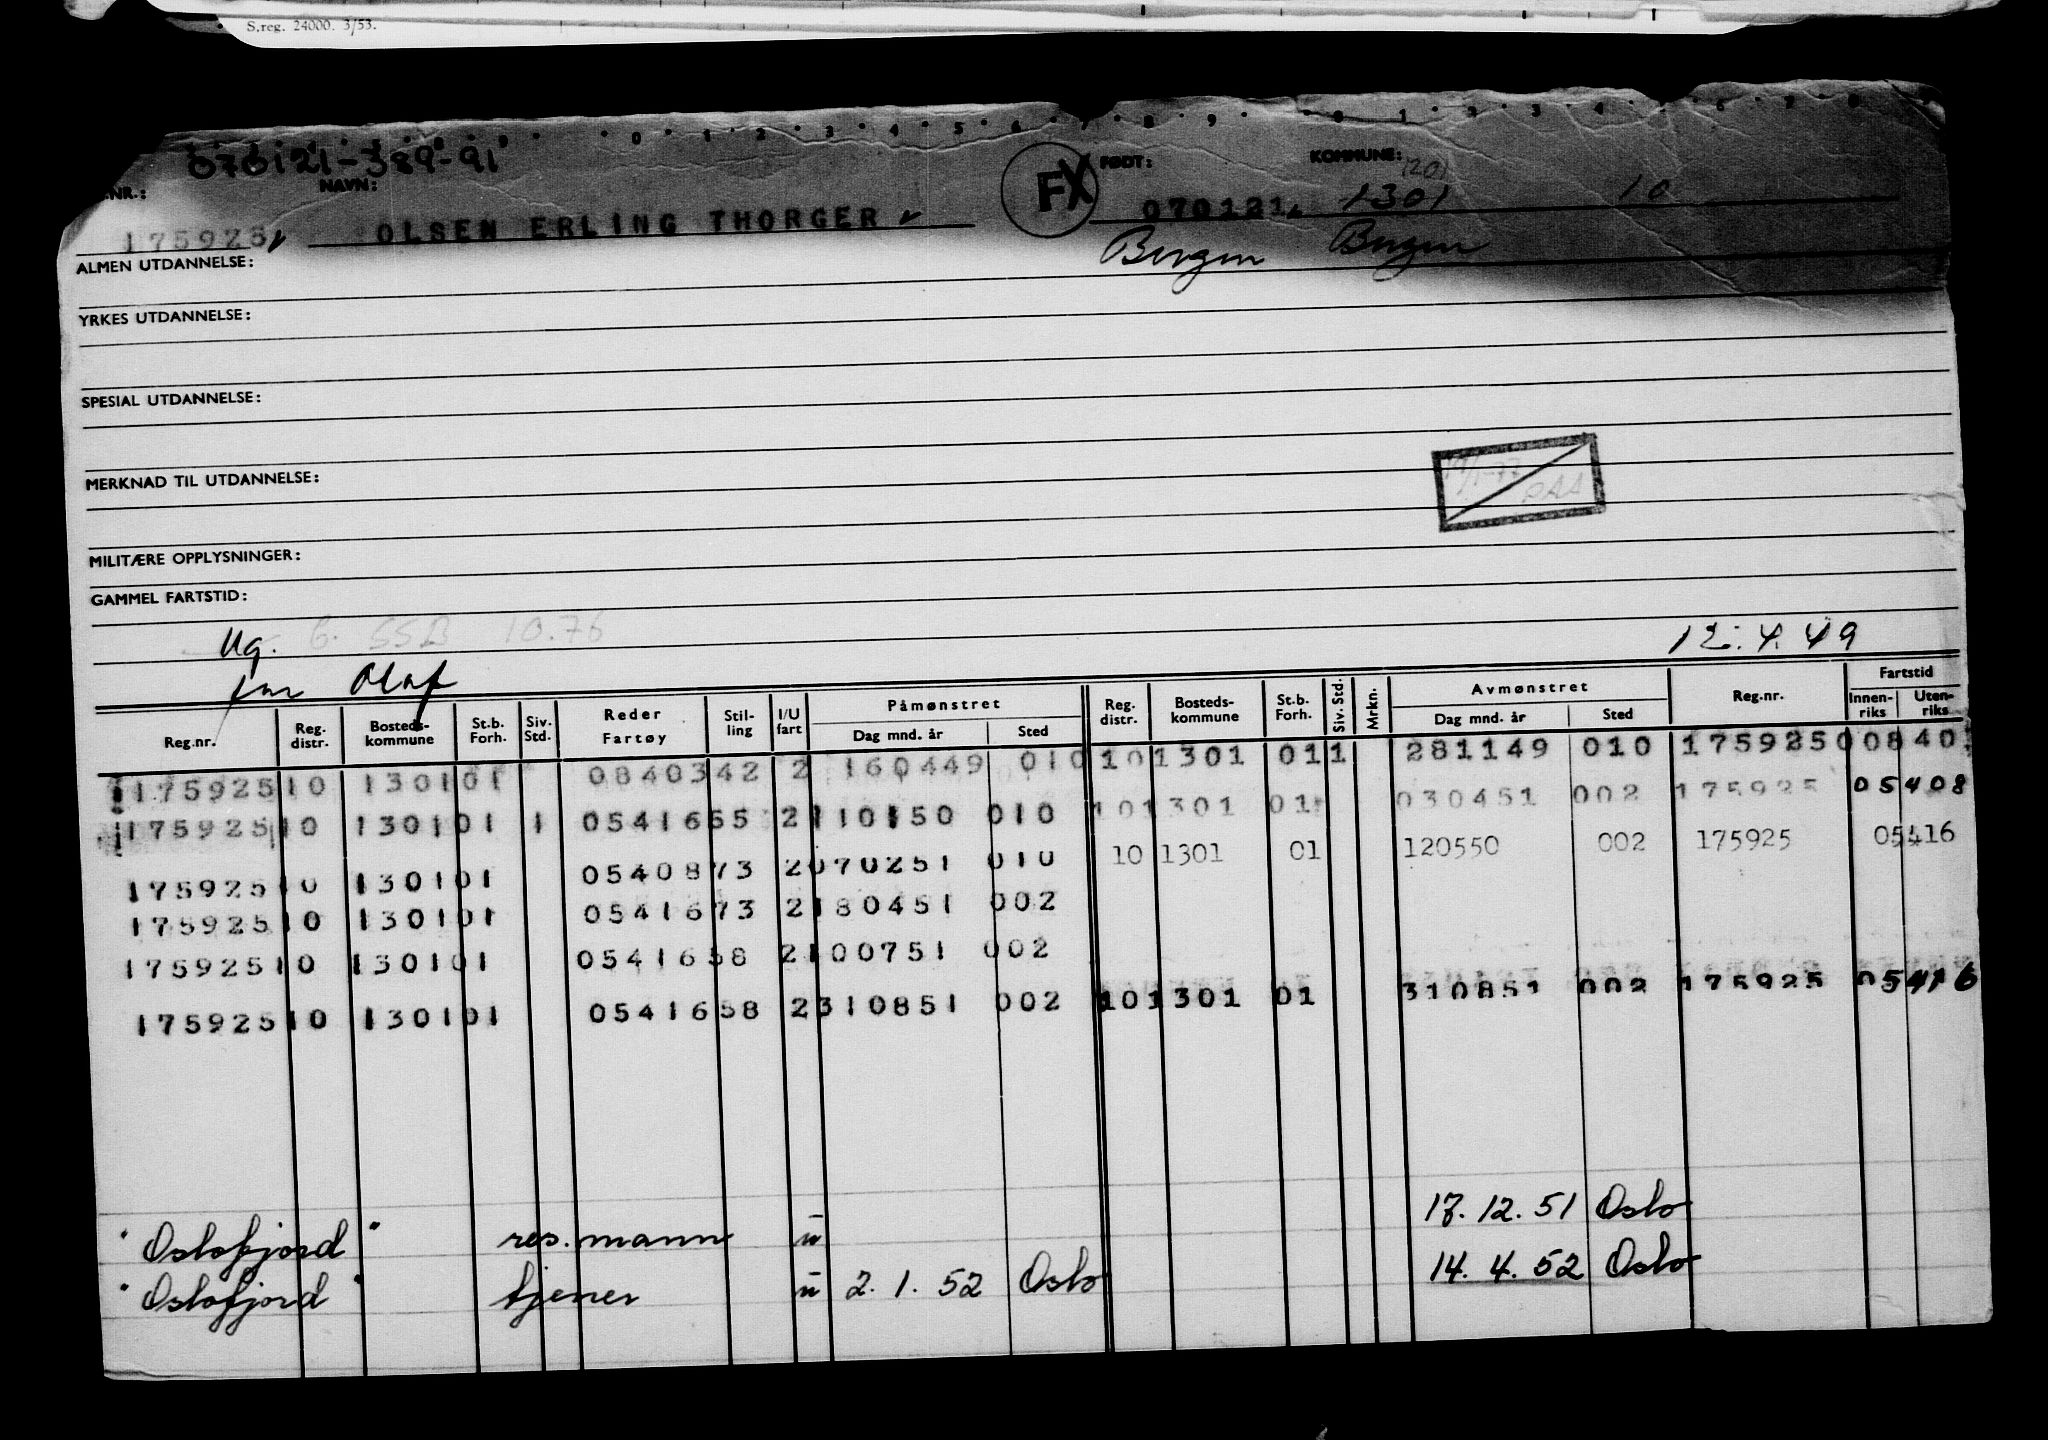 S.reg. 24000. 3/53.
070121-389-91
NR.: NAVN: FX FØDT: KOMMUNE: 1201
175925 OLSEN ERLING THORGER 070121 1301 10
Bergen Bergen
ALMEN UTDANNELSE:
YRKES UTDANNELSE:
SPESIAL UTDANNELSE:
MERKNAD TIL UTDANNELSE:
MILITÆRE OPPLYSNINGER:
GAMMEL FARTSTID:
Ug. 6. SSB 10.76 12.4.49
far Olaf
Reg.nr. Reg. distr. Bosteds-kommune St.b. Forh. Siv. Std. Reder Fartøy Stil-ling I/U fart Påmønstret Dag mnd. år Sted Reg. distr. Bosteds-kommune St.b. Forh. Siv. Std. Mrkn. Avmønstret Dag mnd. år Sted Reg.nr. Fartstid Innen-riks Uten-riks
175925 10 1301 01 08403 42 2 160449 010 10 1301 01 1 281149 010 175925 00840
175925 10 1301 01 1 05416 55 2 110150 010 10 1301 01 030451 002 175925 05408
175925 10 1301 01 05408 73 2 070251 010 10 1301 01 120550 002 175925 05416
175925 10 1301 01 05416 73 2 180451 002
175925 10 1301 01 05416 58 2 100751 002
175925 10 1301 01 05416 58 2 310851 002 10 1301 01 310851 002 175925 05416
"Oslofjord" res.mann u 17.12.51 Oslo
"Oslofjord" tjener u 2.1.52 Oslo 14.4.52 Oslo